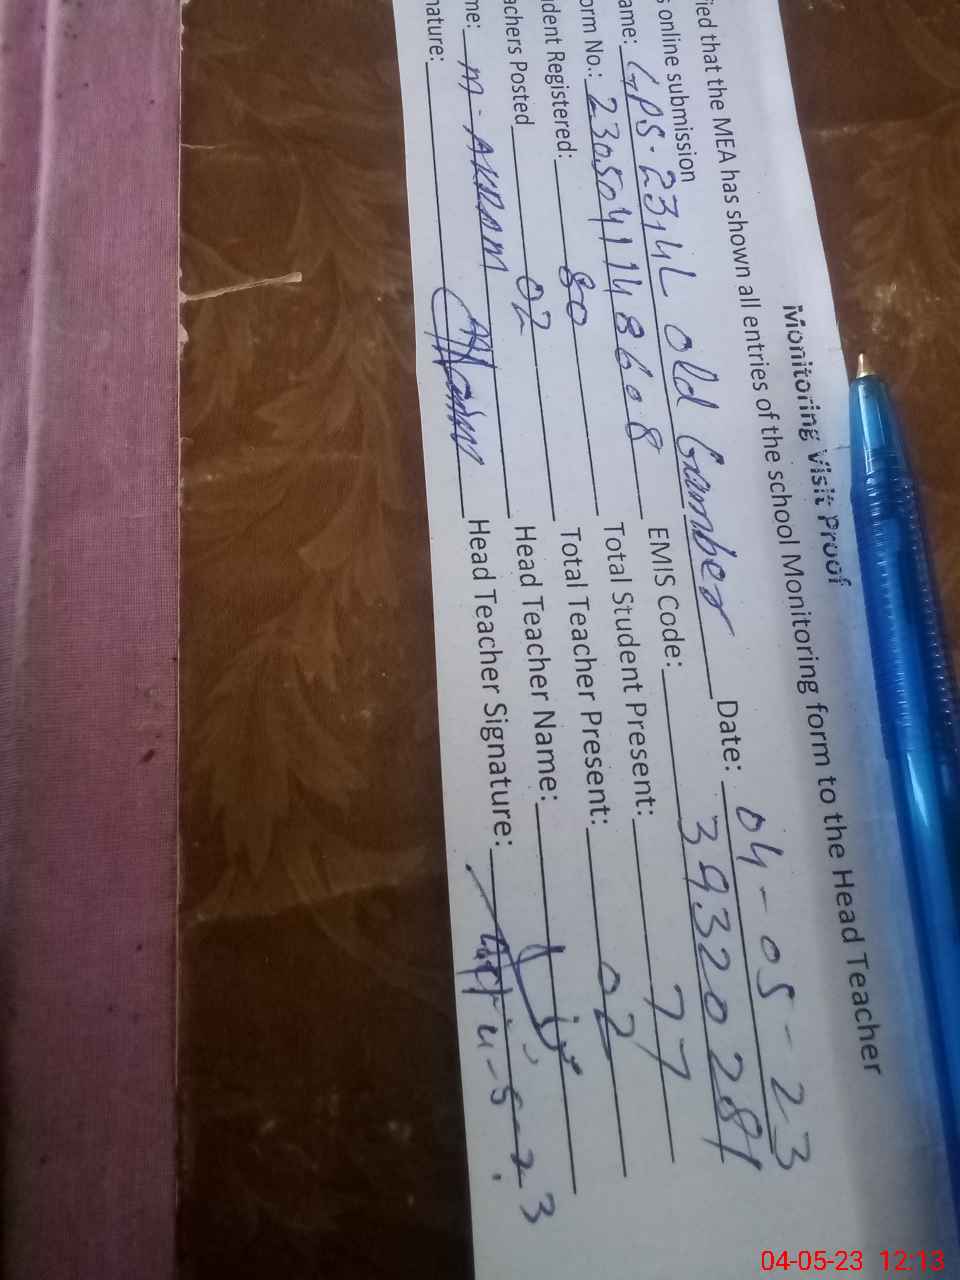 Monitoring Visit Proof
ified that the MEA has shown all entries of the school Monitoring form to the Head Teacher
s online submission
ame: GPS. 2314L old Gamber Date: 04-05-23
orm No.: 2305041148608 EMIS Code: 39320281
dent Registered: 80 Total Student Present: 77
achers Posted 02 Total Teacher Present: 02
me: M. AKRAM Head Teacher Name:
nature: Head Teacher Signature: 4-5-23
04-05-23 12:13